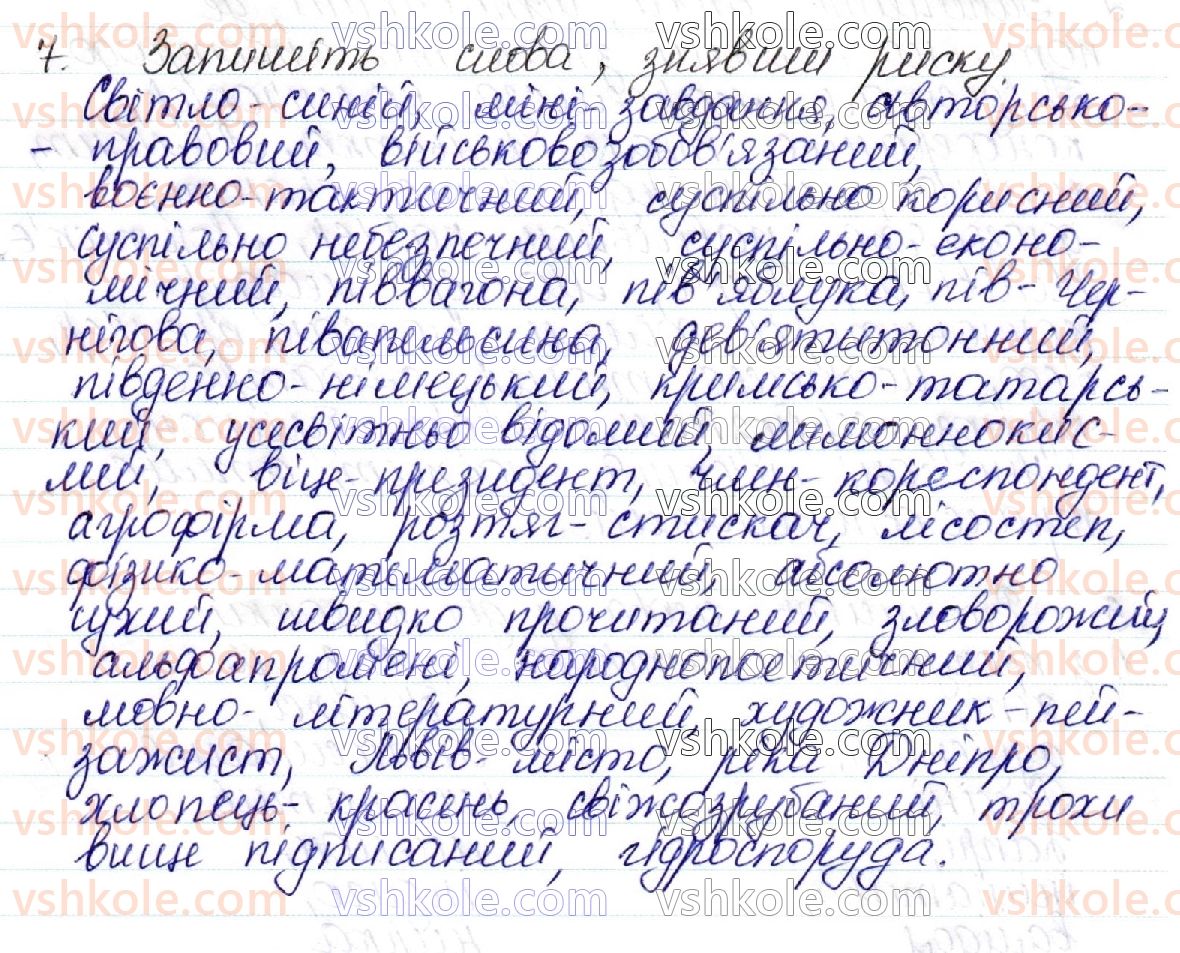 7. Запишіть слова, знявши риску.
Світло-синій, міні-завдання, авторсько-
- правовий, військовозобов'язаний,
воєнно-тактичний, суспільно корисний,
суспільно небезпечний, суспільно-еконо-
мічний, піввагона, пів'яблука, пів-Чер-
нігова, півапельсина, дев'ятитонний,
південно-німецький, кримсько-татарсь-
кий, усесвітньо відомий, лимоннокис-
лий, віце-президент, член-кореспондент,
агрофірма, розтяг-стискач, лісостеп,
фізико-математичний, абсолютно
сухий, швидко прочитаний, зловорожий,
альфапромені, народнопоетичний,
мовно-літературний, художник-пей-
зажист, Львів-місто, ріка Дніпро,
хлопець-красень, свіжозрубаний, трохи
вище підписаний, гідроспоруда.